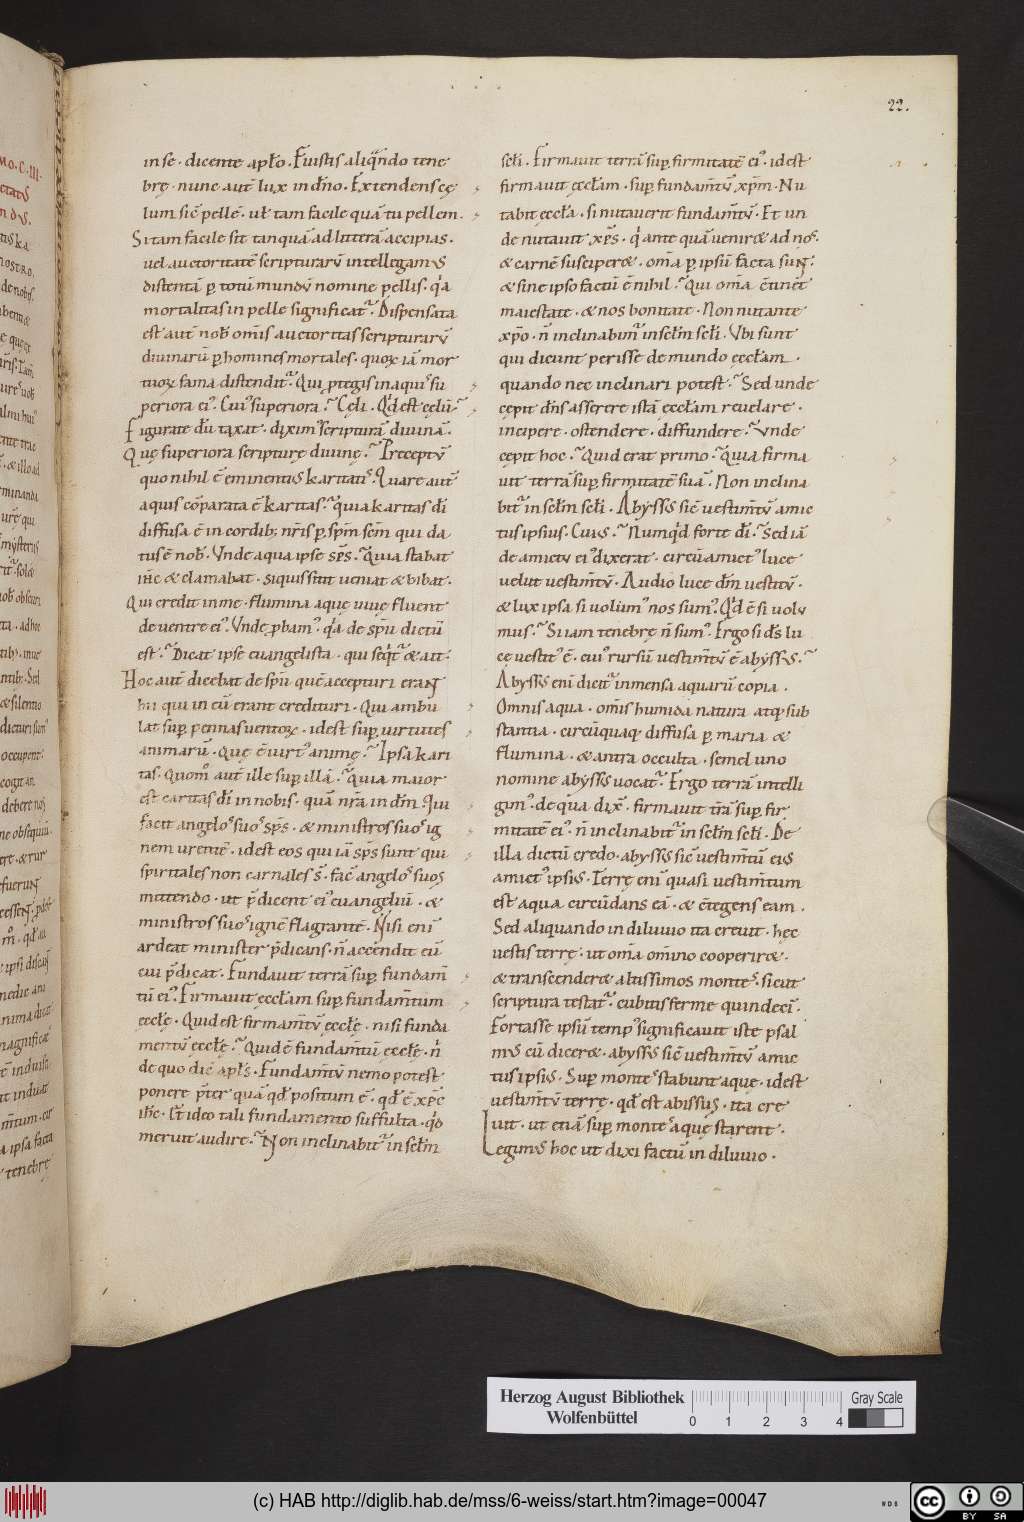 22.
in se · dicente apł̅o · Fuistis aliqñdo tene
brę · nunc aut̅ lux in dn̅o · Extendens cę
lum sic̅ pelle̅ · uł tam facile qua̅ tu pellem ·
Si tam facile sit tanqua̅ ad littera̅ accipias ·
uel auctoritate̅ scripturaru̅ intellegamus
distenta̅ p̱ totu̅ mundu̅ nomine pellis · qa
mortalitas in pelle significat᷑ · Dispensata
est aut̅ nob̅ om̅is auctoritas scripturaru̅
diuinaru̅ p̱ homines mortales · quoꝝ ia̅ mor
tuoꝝ fama distendit᷑ · Qui ꝓtegis in aquis su
periora ei᾽ · Cui᾽ superiora · Cęli · Qd̅ est cęlu̅ ·
Figurate du̅ taxat · dixim᾽ scriptura̅ diuina̅ ·
Quę superiora scripturę diuinę · Preceptu̅
quo nihil e̅ eminentius karitatis · Quare aut̅
aquis co̅parata e̅ karitas · quia karitas di̅
diffusa e̅ in cordib; nr̅is p̱ sp̅m sc̅m qui da
tus e̅ nob̅ · Vnde aqua ipse sp̅s · quia stabat
ih̅c & clamabat · siquis sitit ueniat & bibat ·
Qui credit in me · flumina aquę uiuę fluent
de uentre ei᾽ · Vnde ꝓbam᾽ · qa de sp̅u dictu̅
est · Dicat ipse euangelista · qui seqt᷑ & ait ·
Hoc aut̅ dicebat de sp̅u que̅ accepturi erant
hii qui in eu̅ erant credituri · Qui ambu
lat sup̱ pennas uentoꝝ · id est sup̱ uirtutes
animaru̅ · Quę e̅ uirt᾽ animę · Ipsa kari
tas · Quom̊ aut̅ ille sup̱ illa̅ · Quia maior
est caritas di̅ in nobis · qua̅ nr̅a in dm̅ · Qui
facit angelos suos sp̅s · & ministros suos ig
nem urente̅ · id est eos qui ia̅ sp̅s sunt qui
spiritales non carnales s̅ · fac̅ angelos suos
mittendo · ut p̅dicent ei᾽ euangeliu̅ · &
ministros suos igne̅ flagrante̅ · Nisi eni̅
ardeat minister p̅dicans · n̅ accendit eu̅
cui p̅dicat · Fundauit terra̅ sup̱ fundam̅
tu̅ ei᾽ · Firmauit eccl̅am sup̱ fundam̅tum
eccl̅ę · Quid est firmam̅tu̅ eccl̅ę · nisi funda
mentu̅ eccl̅ę · Quid e̅ fundam̅tu̅ eccl̅ę · n̅
de quo dic̅ apl̅s · Fundam̅tu̅ nemo potest
ponere p̅ter qua̅ qd̅ positum e̅ · qd̅ e̅ xp̅c
ih̅c · G̅ ideo tali fundamento suffulta · qd̅
meruit audire · Non inclinabit᷑ in scl̅m
scl̅i · Firmauit terra̅ sup̱ firmitate̅ ei᾽ · id est
firmauit eccl̅am · sup̱ fundam̅tu̅ xp̅m · Nu
tabit eccl̅a · si nutauerit fundam̅tu̅ · Et un
de nutauit xp̅s · q̅ ante qua̅ uenir& ad nos ·
& carne̅ susciper& · om̅a p̱ ipsu̅ facta sunt ·
& sine ipso factu̅ e̅ nihil · Qui om̅a c̅tinet
maiestate · & nos bonitate · Non nutante
xp̅o · n̅ inclinabim᾽ in scl̅m scl̅i · Vbi sunt
qui dicunt perisse de mundo eccl̅am ·
quando nec inclinari potest · Sed unde
cępit dn̅s asserere ista̅ eccl̅am reuelare ·
incipere · ostendere · diffundere · Vnde
cępit hoc · Quid erat primo · Quia firma
uit terra̅ sup̱ firmitate̅ sua̅ · Non inclina
bit᷑ in scl̅m scl̅i · Abyssus sic̅ uestim̅tu̅ amic
tus ipsius · Cuius · Numqd̅ forte di̅ · Sed ia̅
de amictu ei᾽ dixerat · circu̅amict᾽ luce
uelut uestim̅tu̅ · Audio luce dm̅ uestitu̅ ·
& lux ipsa si uolum᾽ nos sum᾽ · Qd̅ e̅ si uolu
mus · Si iam tenebrę n̅ sum᾽ · Ergo si ds̅ lu
cę uestit᾽ e̅ · cui᾽ rursu̅ uestim̅tu̅ e̅ abyssus ·
Abyssus eni̅ dicit᷑ inmensa aquaru̅ copia ·
Omnis aqua · om̅is humida natura atq; sub
stantia · circu̅quaq; diffusa p̱ maria &
flumina · & antra occulta · semel uno
nomine abyssus uocat᷑ · Ergo terra̅ intelli
gim᾽ · de qua dix̅ · firmauit tr̅a̅ sup̱ fir
mitate̅ ei᾽ · n̅ inclinabit᷑ in scl̅m scl̅i · De
illa dictu̅ credo · abyssus sic̅ uestim̅tu̅ eius
amict᾽ ipsius · Terrę eni̅ quasi uestim̅tum
est aqua circu̅dans ea̅ · & c̅tegens eam ·
Sed aliquando in diluuio ita creuit · hęc
uestis terrę · ut om̅ia om̅ino cooperir& ·
& transcender& altissimos montes · sicut
scriptura testat᷑ · cubitis ferme quindeci̅ ·
Fortasse ipsu̅ temp᾽ significauit iste psal
mus cu̅ dicer& · abyssus sic̅ uestim̅tu̅ amic
tus ipsius · Sup̱ montes stabunt aquę · id est
uestim̅tu̅ terrę · qd̅ est abissus · ita cre
uit · ut etia̅ sup̱ montes aquę starent ·
Legimus hoc ut dixi factu̅ in diluuio ·
Herzog August Bibliothek
Wolfenbüttel
0 1 2 3 4
Gray Scale
(c) HAB http://diglib.hab.de/mss/6-weiss/start.htm?image=00047
WDB
cc BY SA